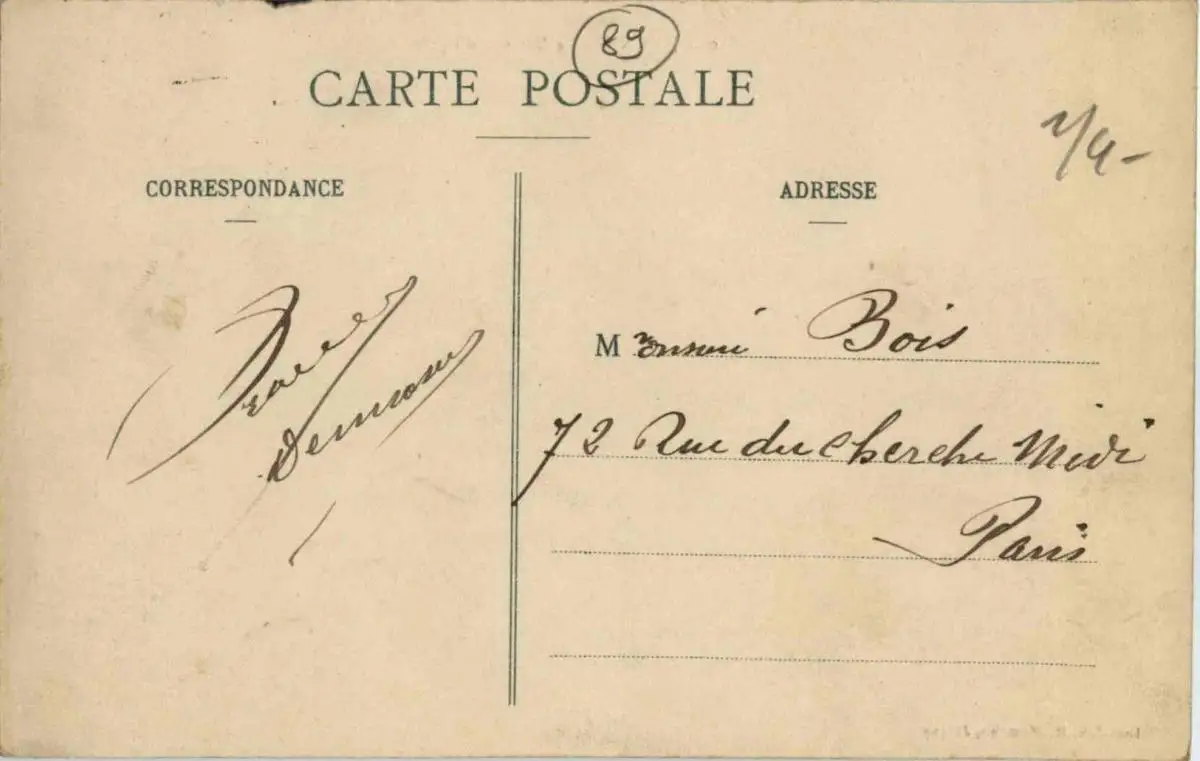 89
CARTE POSTALE
CORRESPONDANCE
ADRESSE
Monsieur Bois
72 Rue du Cherche Midi
Paris